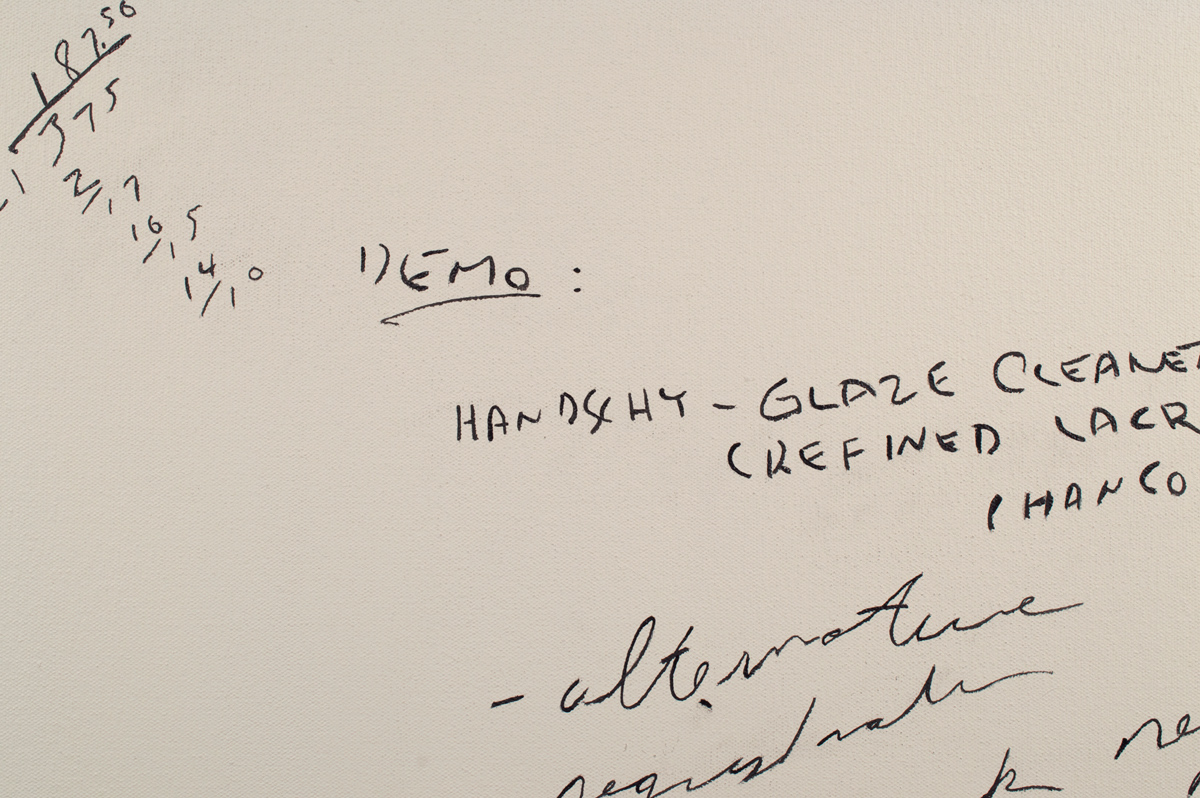 187.50
375
2/17
16/15
14/10
DEMO:
HANDSCHY - GLAZE CLEANER
(REFINED LACR
PHANCO
- alternative